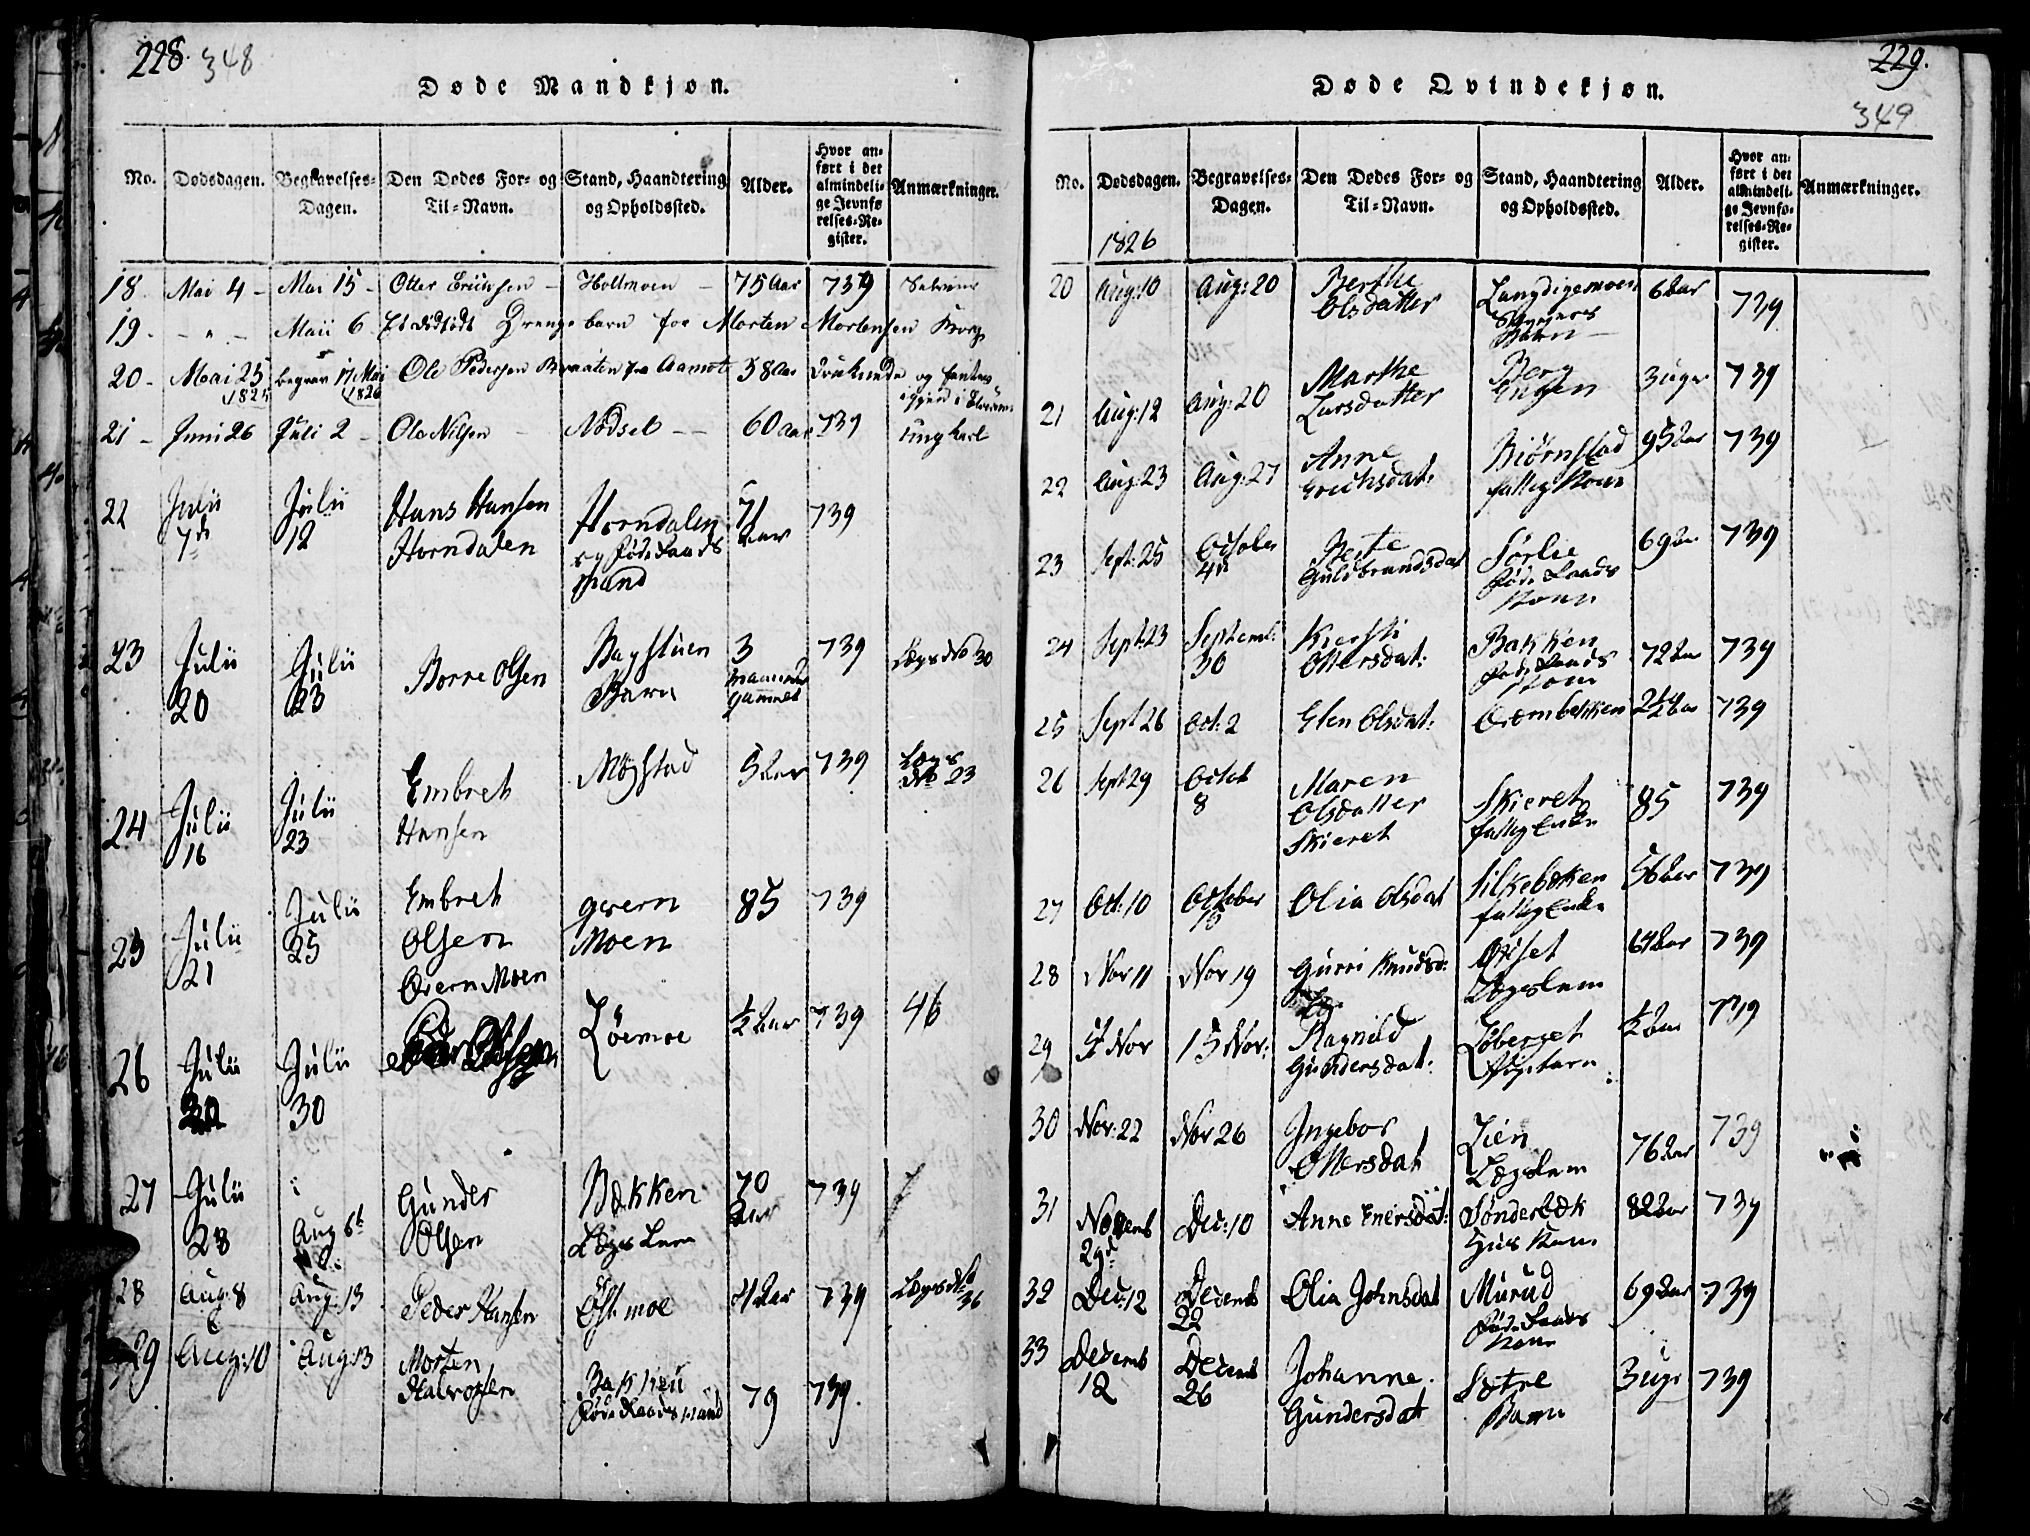 228. 348
Døde Mandkjøn.
No. Dødsdagen. Begravelses-Dagen. Den Dødes For- og Til-Navn. Stand, Haandtering og Opholdssted. Alder. Hvor anført i det almindelige Jevnførelses-Register. Anmærkninger.
18. Mai 4 - Mai 15 - Otter - 75 Aar 739
19. - " - Maii 6 Drengebarn for Morten Mortensen
20 - Mai 25 1825 begrav 17 Mai 1826 Ole Pedersen Braaten fra Aamot 38 Aar Druknede og
21 - Juni 26 Juli 2 - Ole Nilsen - Nødset - - 60 Aar 739 ungkarl
22 Julii 7de Julii 12 Hans Hansen Horndalen Horndalen og Føderaads Mand 71 Aar 739
23 Julii 20 Julii 23 Børre Olsen Bagstuen Barn 3 Maaneder Gammel 739 Lægd No 30
24 Julii 16 Julii 23 Embret Hansen Møgstad 5 Aar 739 Lægs No 23
25 Julii 21 Julii 25 Embret Olsen Qvern Moen qvern Moen 85 739
26 Julii Julii 30 Olsen Löemoe ½ Aar 739 46
27 Julii 28 Aug 6t Gunder Olsen Bækken Lægs Lem 70 Aar 739
28 Aug: 8 Aug: 13 Peder Hansen Østmoe Aar 739 Lægs No 36
29 Aug: 10 Aug: 13 Morten Halvorsen Bakken Føderaadsmand 79 739.
229.
349
Døde Qvindekjøn.
No. Dødsdagen. Begravelses-Dagen. Den Dødes For- og Til-Navn. Stand, Haandtering og Opholdssted. Alder. Hvor anført i det almindelige Jevnførelses-Register. Anmærkninger.
1826
20 Aug: 10 Aug: 20 Berthe Olsdatter Langdigemoen Barn 6 Aar 739
21 Aug: 12 Aug: 20 Marthe Larsdatter Berg Engen 3 uger 739
22 Aug: 23 Aug: 27 Anne Erichsdat: Biørnstad fattig Kone 95 Aar 739
23 Sept: 25 October Berte Guldbrandsdat Sørlie Føderaads Kone 69 Aar 739
24 Sept: 23 Septemb: 30 Kiersti Ottersdat: Bakken Føderaads Kone 72 Aar 739
25 Sept 26 Oct: 2 Elen Olsdat: 739
26 Sept 29 Octob 8 Maren Olsdatter Skieret Skieret fattig Enke 85 739
27 Oct: 10 October 15 Olia Olsdat Silkebækken fattig Enke 56 Aar 739
28 Nov 11 Nov 19 Gurri Knudsd: Opset Lægslem 64 Aar 739
29 Nov 15 Nov: Ragnild Gundersdat: Löberget ½ Aar 739
30 Nov: 22 Nov 26 Ingebor Ottersdat Lien Lægslem 76 Aar 739
31 Novemb 29d Dec: 10 Anne Enersdat: Sønderbæk Huskone 82 Aar 739
32 Dec: 12 Decemb 22 Olia Johnsdat Murud Føderaads Kone 69 Aar 739
33 Decemb 12 Decemb 26 Johanne Gundersdat Sætre Barn 3 ug: 739